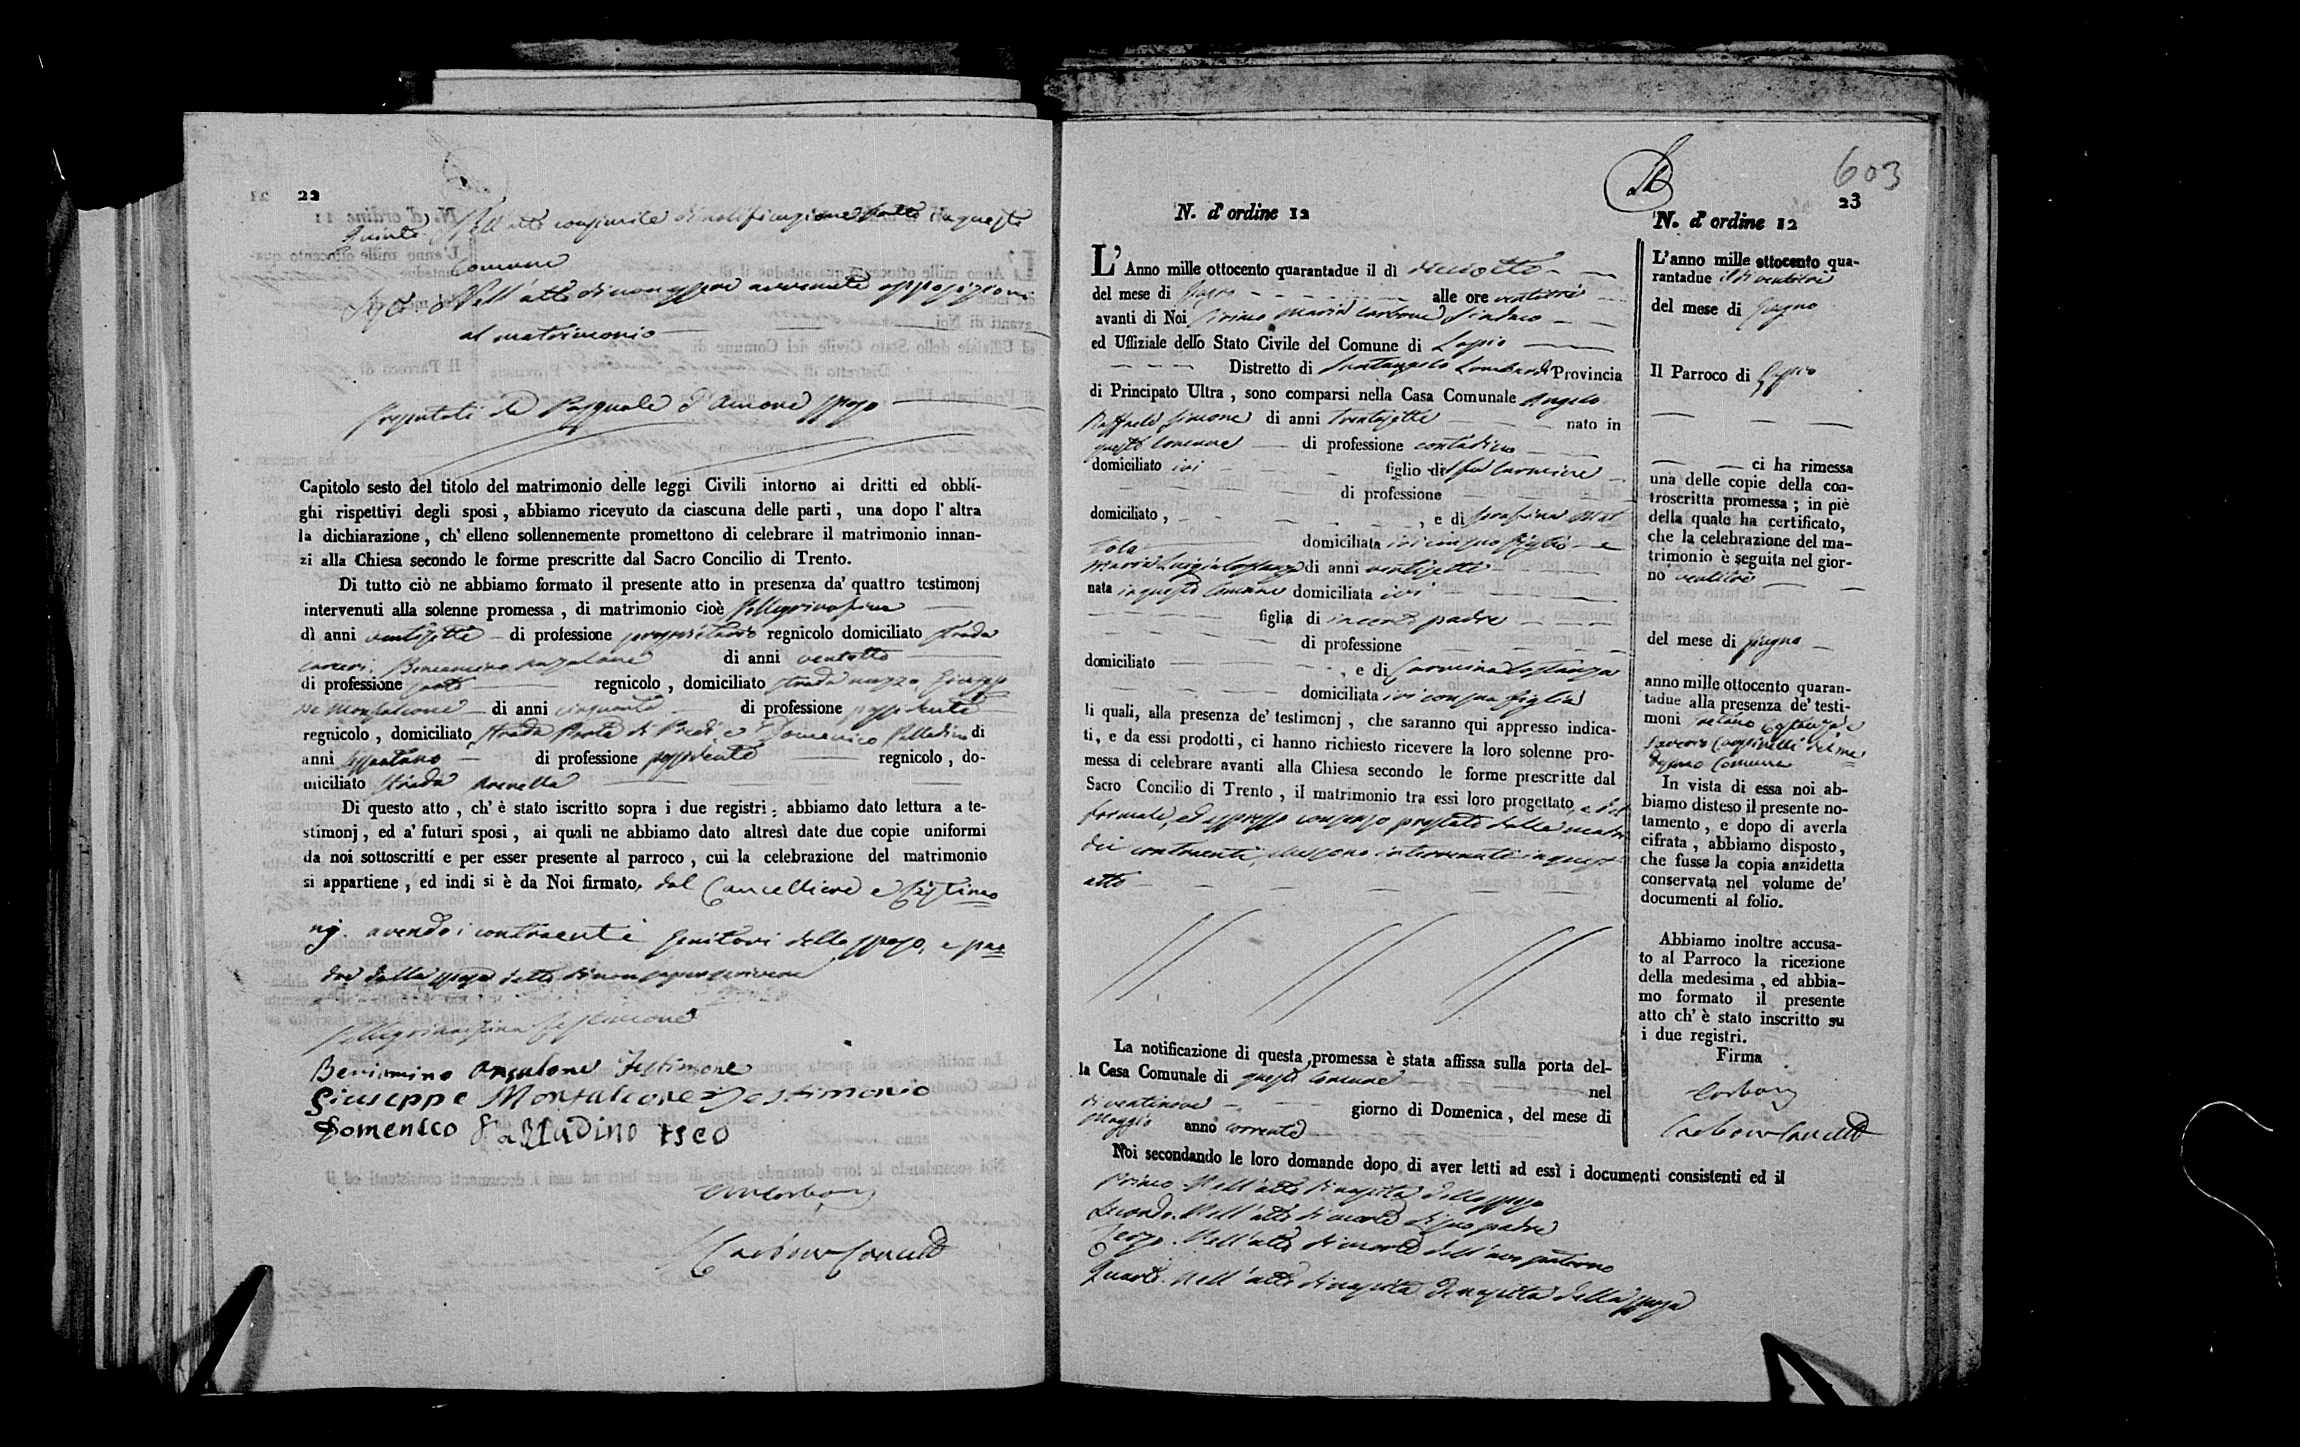 22
Quinto. Nell'atto consimile di notificazione fatto in questo
Comune
Sesto. Nell'atto di non essere avvenute opposizioni
al matrimonio
presentati da Pasquale d'Amore sposo
Capitolo sesto del titolo del matrimonio delle leggi Civili intorno ai dritti ed obbli-
ghi rispettivi degli sposi, abbiamo ricevuto da ciascuna delle parti, una dopo l'altra
la dichiarazione, ch' elleno sollennemente promettono di celebrare il matrimonio innan-
zi alla Chiesa secondo le forme prescritte dal Sacro Concilio di Trento.
Di tutto ciò ne abbiamo formato il presente atto in presenza da' quattro testimonj
intervenuti alla solenne promessa, di matrimonio cioè Pellegrino
di anni ventisette di professione proprietario regnicolo domiciliato strada
carceri. Beniamino Anzalone di anni ventotto
di professione regnicolo, domiciliato strada Giuseppe
Monfalcone di anni cinquanta di professione possidente
regnicolo, domiciliato strada Porta di Piedi e Domenico Palladino di
anni di professione possidente regnicolo, do-
miciliato strada
Di questo atto, ch' è stato iscritto sopra i due registri: abbiamo dato lettura a te-
stimonj, ed a' futuri sposi, ai quali ne abbiamo dato altresì date due copie uniformi
da noi sottoscritti e per esser presente al parroco, cui la celebrazione del matrimonio
si appartiene, ed indi si è da Noi firmato, dal Cancelliere e testimo
nj. avendo i contraenti genitori dello sposo, e pa
dre della sposa detto di non saper scrivere
Pellegrino Testimone
Beniamino Anzalone Testimone
Giuseppe Monfalcone Testimonio
Domenico Palladino
Carbone
Carbone Cancell
603
23
N. d' ordine 12
L'Anno mille ottocento quarantadue il dì diciotto
del mese di alle ore ventitré
avanti di Noi Primo Maria Carbone Sindaco
ed Uffiziale dello Stato Civile del Comune di Lapio
Distretto di Santangelo Lombardi Provincia
di Principato Ultra, sono comparsi nella Casa Comunale Angelo
Raffaele Simone di anni trentasette nato in
questo Comune di professione contadino
domiciliato ivi figlio di fu Carmine
di professione
domiciliato, , e di Serafina Mat
tola domiciliata ivi con suo figlio e
Maria Luigia Costanza di anni ventisette
nata in questo Comune domiciliata ivi
figlia di incerto padre
di professione
domiciliato , e di Carmina Costanza
domiciliata ivi con sua figlia
li quali, alla presenza de' testimonj, che saranno qui appresso indica-
ti, e da essi prodotti, ci hanno richiesto ricevere la loro solenne pro-
messa di celebrare avanti alla Chiesa secondo le forme prescritte dal
Sacro Concilio di Trento, il matrimonio tra essi loro progettato, e
formale, ed espresso consenso prestato dalle madri
dei contraenti intervenute in questo
atto
La notificazione di questa promessa è stata affissa sulla porta del-
la Casa Comunale di questo Comune nel
dì ventinove giorno di Domenica, del mese di
Maggio anno corrente
Noi secondando le loro domande dopo di aver letti ad essi i documenti consistenti ed il
Primo. Nell'atto di nascita dello sposo
Secondo. Nell'atto di morte di suo padre
Terzo. Nell'atto di morte dell'avo paterno
Quarto. Nell'atto di nascita di nascita della sposa
N. d' ordine 12
L'anno mille ottocento qua-
rantadue il dì ventitré
del mese di Giugno
Il Parroco di Lapio
ci ha rimessa
una delle copie della con-
troscritta promessa; in piè
della quale ha certificato,
che la celebrazione del ma-
trimonio è seguita nel gior-
no ventitré
del mese di Giugno
anno mille ottocento quaran-
tadue alla presenza de' testi-
moni Gaetano Costanza e
Saverio del me
desimo Comune
In vista di essa noi ab-
biamo disteso il presente no-
tamento, e dopo di averla
cifrata, abbiamo disposto,
che fusse la copia anzidetta
conservata nel volume de'
documenti al folio.
Abbiamo inoltre accusa-
to al Parroco la ricezione
della medesima, ed abbia-
mo formato il presente
atto ch' è stato inscritto su
i due registri.
Firma
Carbone
Carbone Cancell